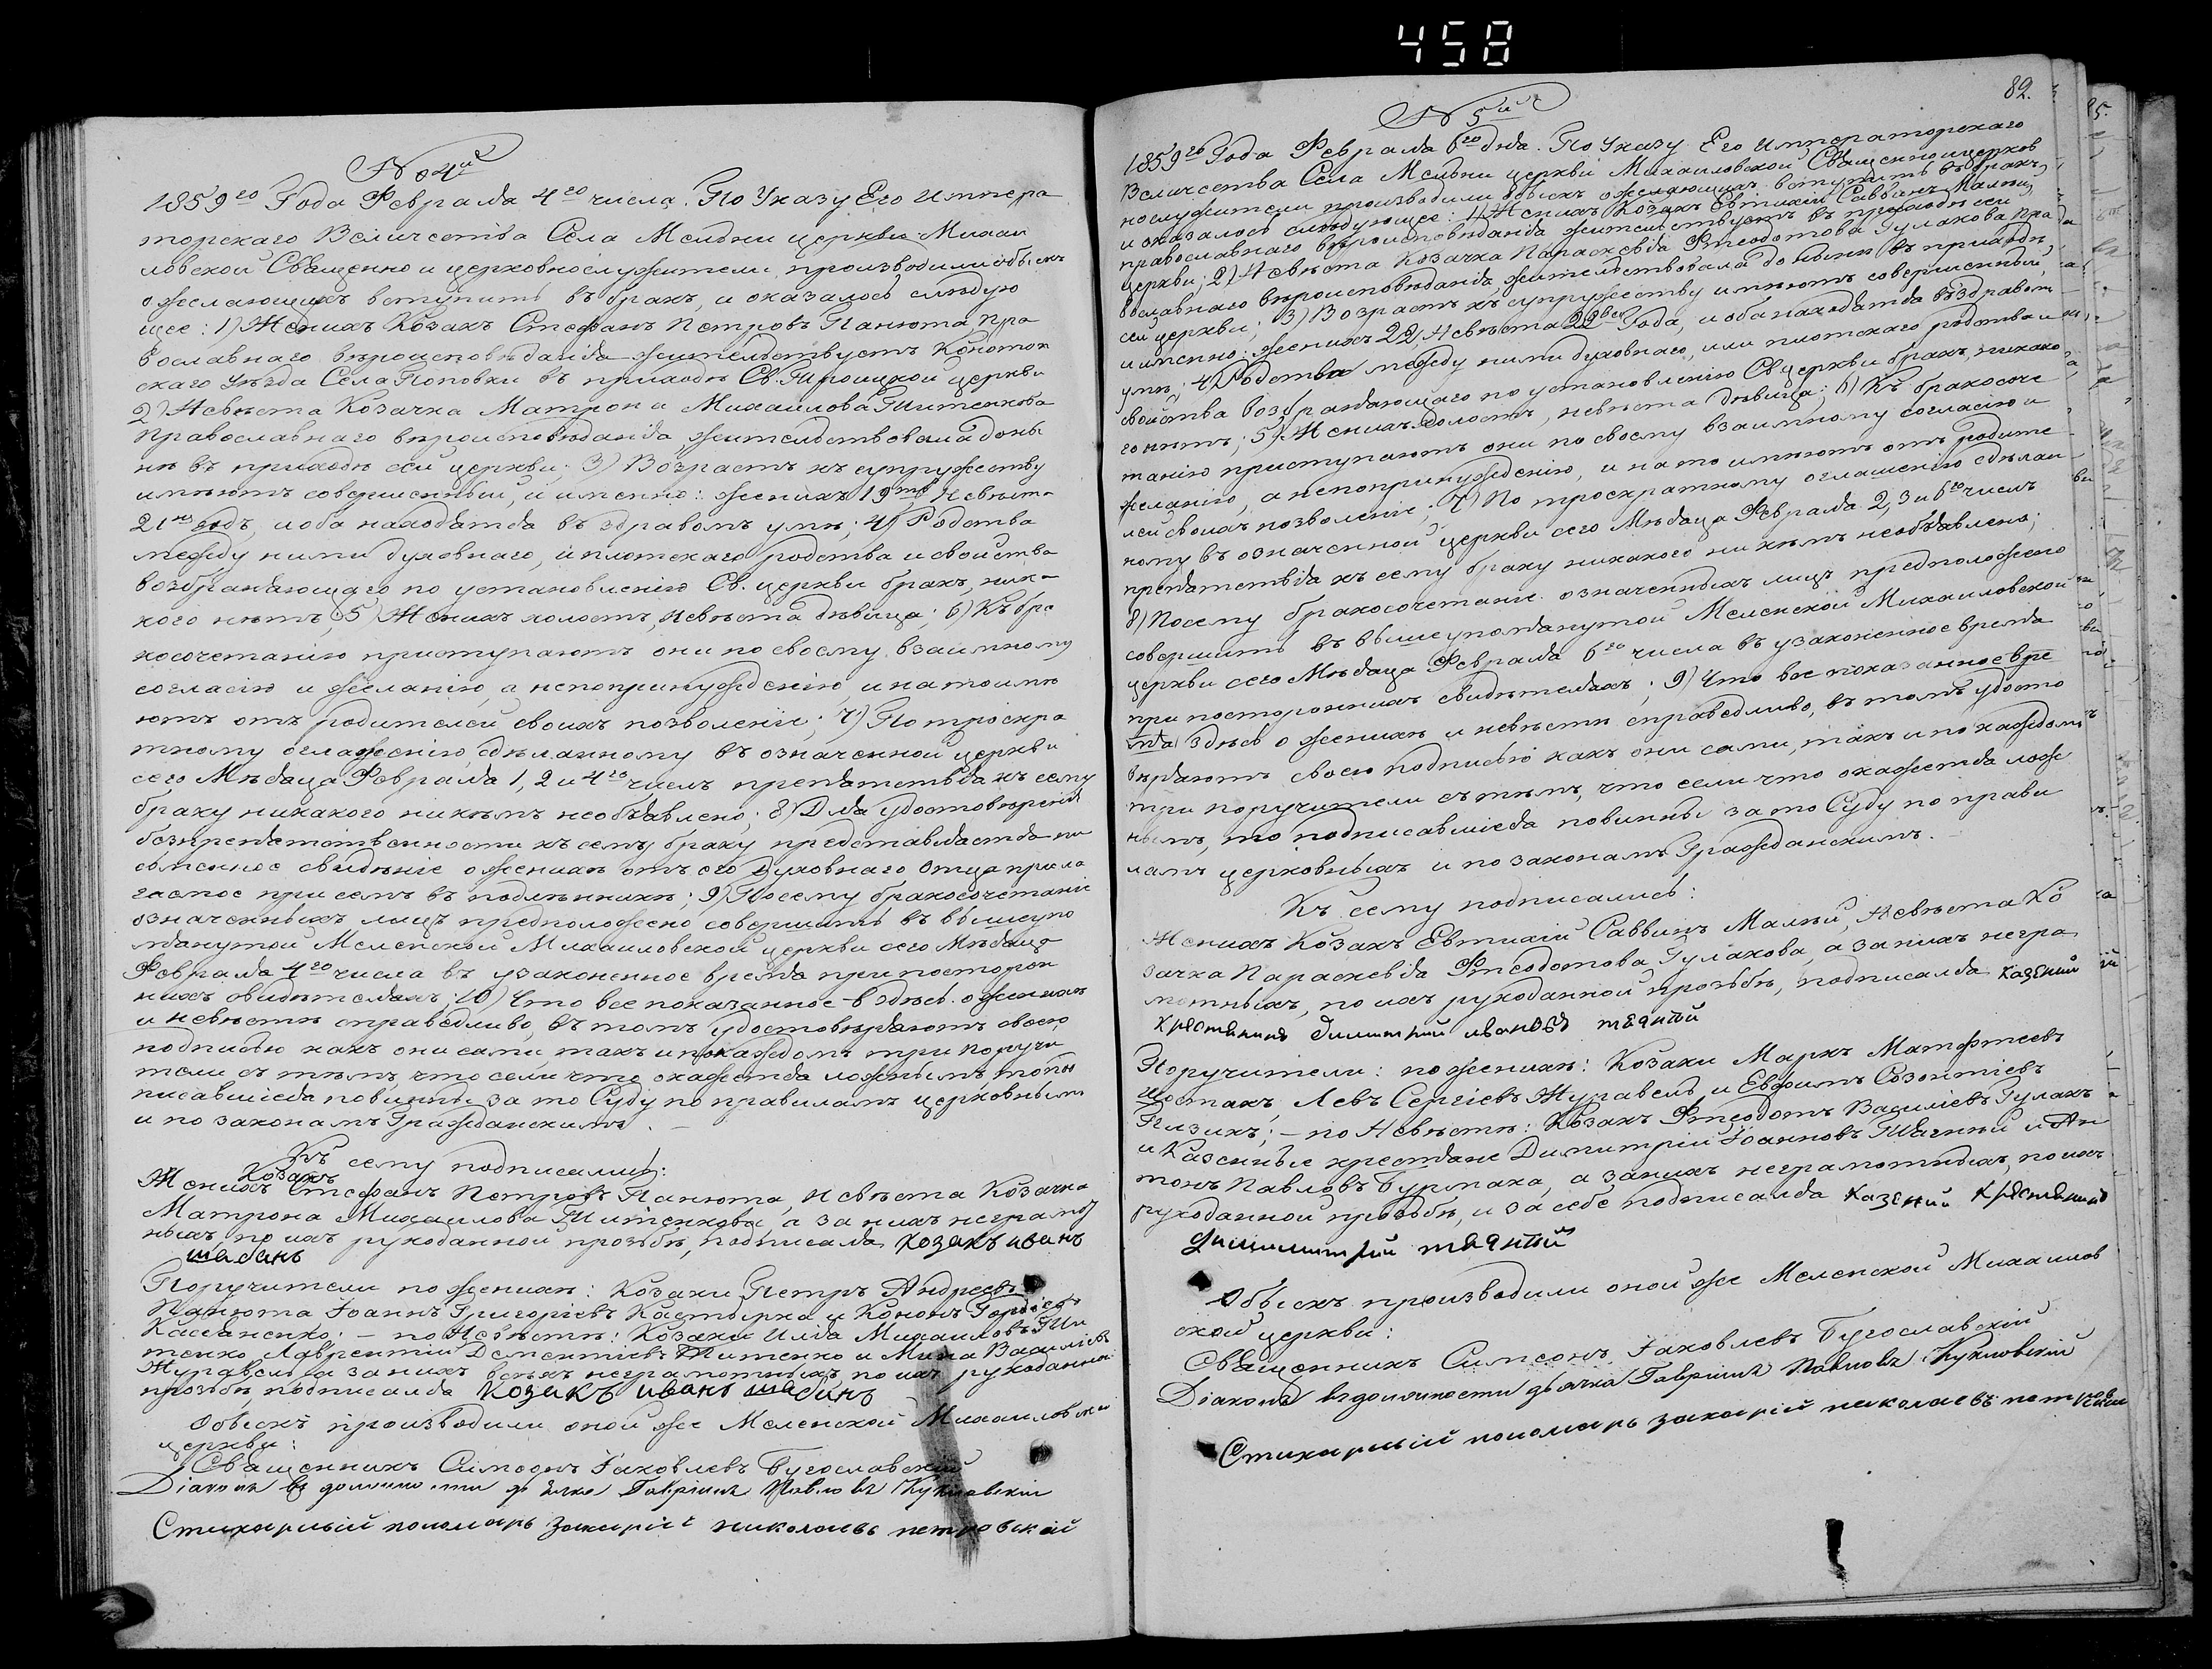 458
№ 4й
1859го Года Февраля 4го числа. По Указу Его Импера
торскаго Величества Села Мельни церкви Михаи
ловской Священно и церковнослужители производили обыскъ
о желающихъ вступить въ бракъ, и оказалось слѣдую
щее: 1) Женихъ Козакъ Стефанъ Петровъ Панюта, Пра
вославнаго вѣроисповѣданія жительствуетъ Конотоп
скаго уѣзда Села Поповки въ приходѣ Св. Троицкой церкви
2) Невѣста Козачка Матрона Михаилова Титенкова
Православнаго вѣроисповѣданія, жительствовала доны
нѣ въ приходѣ сей церкви; 3) Возрастъ къ супружеству
имѣютъ совершенный, и именно: женихъ 19ть Невѣста
21нъ годъ, и оба находятся въ здравомъ умѣ; 4) Родства
между ними духовнаго, и плотскаго родства и свойства
возбраняющаго по установленію Св. церкви бракъ, ника
кого нѣтъ, 5) Женихъ холостъ, Невѣста дѣвица; 6) Къ бра
косочетанію приступаютъ они по своему взаимному
согласію и желанію, а непопринужденію, и на то имѣ
ютъ отъ родителей своихъ позволеніе; 7) По троекра
тному оглашенію, сдѣланному въ означенной церкви
сего Мѣсяца Февраля 1, 2 и 4го числъ препятствія къ сему
браку никакого никѣмъ необъявлено; 8) Для удостовѣренія
безпрепятственности къ сему браку представляется пи
сьменное свидѣніе о женихѣ отъ его Духовнаго Отца прила
гаемое при семъ въ подлѣнникѣ; 9) Посему бракосочетаніе
означенныхъ лицъ предположено совершить въ вышеупо
мянутой Меленской Михаиловской церкви сего Мѣсяца
Февраля 4го числа въ узаконенное время при посторон
нихъ свидѣтеляхъ; 10) Что все показанное здѣсь о женихѣ
и невѣстѣ справедливо, въ томъ удостовѣряютъ своею
подписью какъ они сами, такъ и по каждомъ три поручи
тели съ тѣмъ, что если что окажется ложнымъ, то по
писавшіеся повинны за то Суду по правиламъ церковнымъ
и по законамъ Гражданскимъ.
Къ сему подписались:
Козакъ
Женихъ Стефанъ Петровъ Панюта, Невѣста Козачка
Матрона Михаилова Титенкова, а за нихъ неграмот
ныхъ, по ихъ рукоданной прозьбѣ, подписался козакъ иванъ
шабанъ
Поручители по женихѣ: Козаки Петръ Андреевъ
Панюта Іоаннъ Григоріевъ Кастырка и Кононъ Гордіевъ
Касьяненко; – по Невѣстѣ: Козаки Илья Михаиловъ Ти
тенко Лаврентій Дементіевъ Титенко и Мина Василіевъ
Журавель, а за нихъ всѣхъ неграмотныхъ, по ихъ рукоданной
прозьбѣ, подписался козакъ иванъ шабанъ
Обыскъ производили оной же Меленской Михаиловской
церкви:
Священникъ Симеонъ Іаковлевъ Бугославскій
Діаконъ въ должности дьячка Гавріилъ Павловъ Кукловскій
Стихарный пономарь Захарій николаевъ петровскій
82.
№ 5й
1859го Года Февраля 6го дня. По Указу Его Императорскаго
Величества Села Мельни церкви Михаиловской Священноицерков
нослужители производили обыскъ о желающихъ вступить въ бракъ,
и оказалось слѣдующее: 1) Женихъ Козакъ Евтихій Саввинъ Малый,
православнаго вѣроисповѣданія жительствуетъ въ приходѣ сей
церкви; 2) Невѣста Козачка Параскевія Ѳеодотова Гулакова Пра
вославнаго вѣроисповѣданія, жительствовала донынѣ въ приходѣ
сей церкви; 3) Возрастъ къ супружеству имѣютъ совершенный,
и именно: женихъ 22, Невѣста 22 Года, и оба находятся въ здравомъ
умѣ; 4) Родства между ними духовнаго, или плотскаго родства и
свойства возбраняющаго по установленію Св церкви бракъ, никако
го нѣтъ; 5) Женихъ холостъ, невѣста дѣвица; 6) Къ бракосоче
танію приступаютъ они по своему взаимному согласію и
желанію, а непопринужденію, и на то имѣютъ отъ родите
лей своихъ позволеніе; 7) По троекратному оглашенію сдѣлан
ному въ означенной церкви сего Мѣсяца Февраля 2, 3 и 6го числъ
препятствія къ сему браку никакого никѣмъ необъявлено;
8) Посему бракосочетаніе означенныхъ лицъ предположено
совершить въ вышеупомянутой Меленской Михаиловской
церкви сего Мѣсяца Февраля 6го числа въ узаконенное время
при постороннихъ свидѣтеляхъ; 9) Что все показанное вре
мя здѣсь о женихѣ и невѣстѣ справедливо, въ томъ удосто
вѣряютъ своею подписью какъ они сами, такъ и по каждомъ
три поручители съ тѣмъ, что если что окажется лож
нымъ, то подписавшіеся повинны за то Суду по прави
ламъ церковныхъ и по законамъ Гражданскимъ.
Къ сему подписались:
Женихъ Козакъ Евтихій Саввинъ Малый, Невѣста Ко
зачка Параскевія Ѳеодотова Гулакова, а за нихъ негра
мотныхъ, по ихъ рукоданной прозьбѣ, подписался казений
крестянинъ димитрий ивановъ тягный
Поручители: по женихѣ: Козаки Маркъ Матфѣевъ
Шостакъ, Левъ Сергіевъ Журавель и Евфимъ Созонтіевъ
; – по Невѣстѣ: Козакъ Ѳеодотъ Василіевъ Гулакъ
и Казенные крестьяне Димитрій Іоанновъ Тягный и Ан
тонъ Павловъ Бурмака, а за нихъ неграмотныхъ, по ихъ
рукоданной прозьбѣ, и за себе подписался казений крестянинъ
димитрий тягный
Обыскъ производили оной же Меленской Михаилов
ской церкви:
Священникъ Симеонъ Іаковлевъ Бугославскій
Діаконъ въ должности дьячка Гавріилъ Павловъ Кукловскій
Стихарный пономарь Захарій николаевъ петровскій